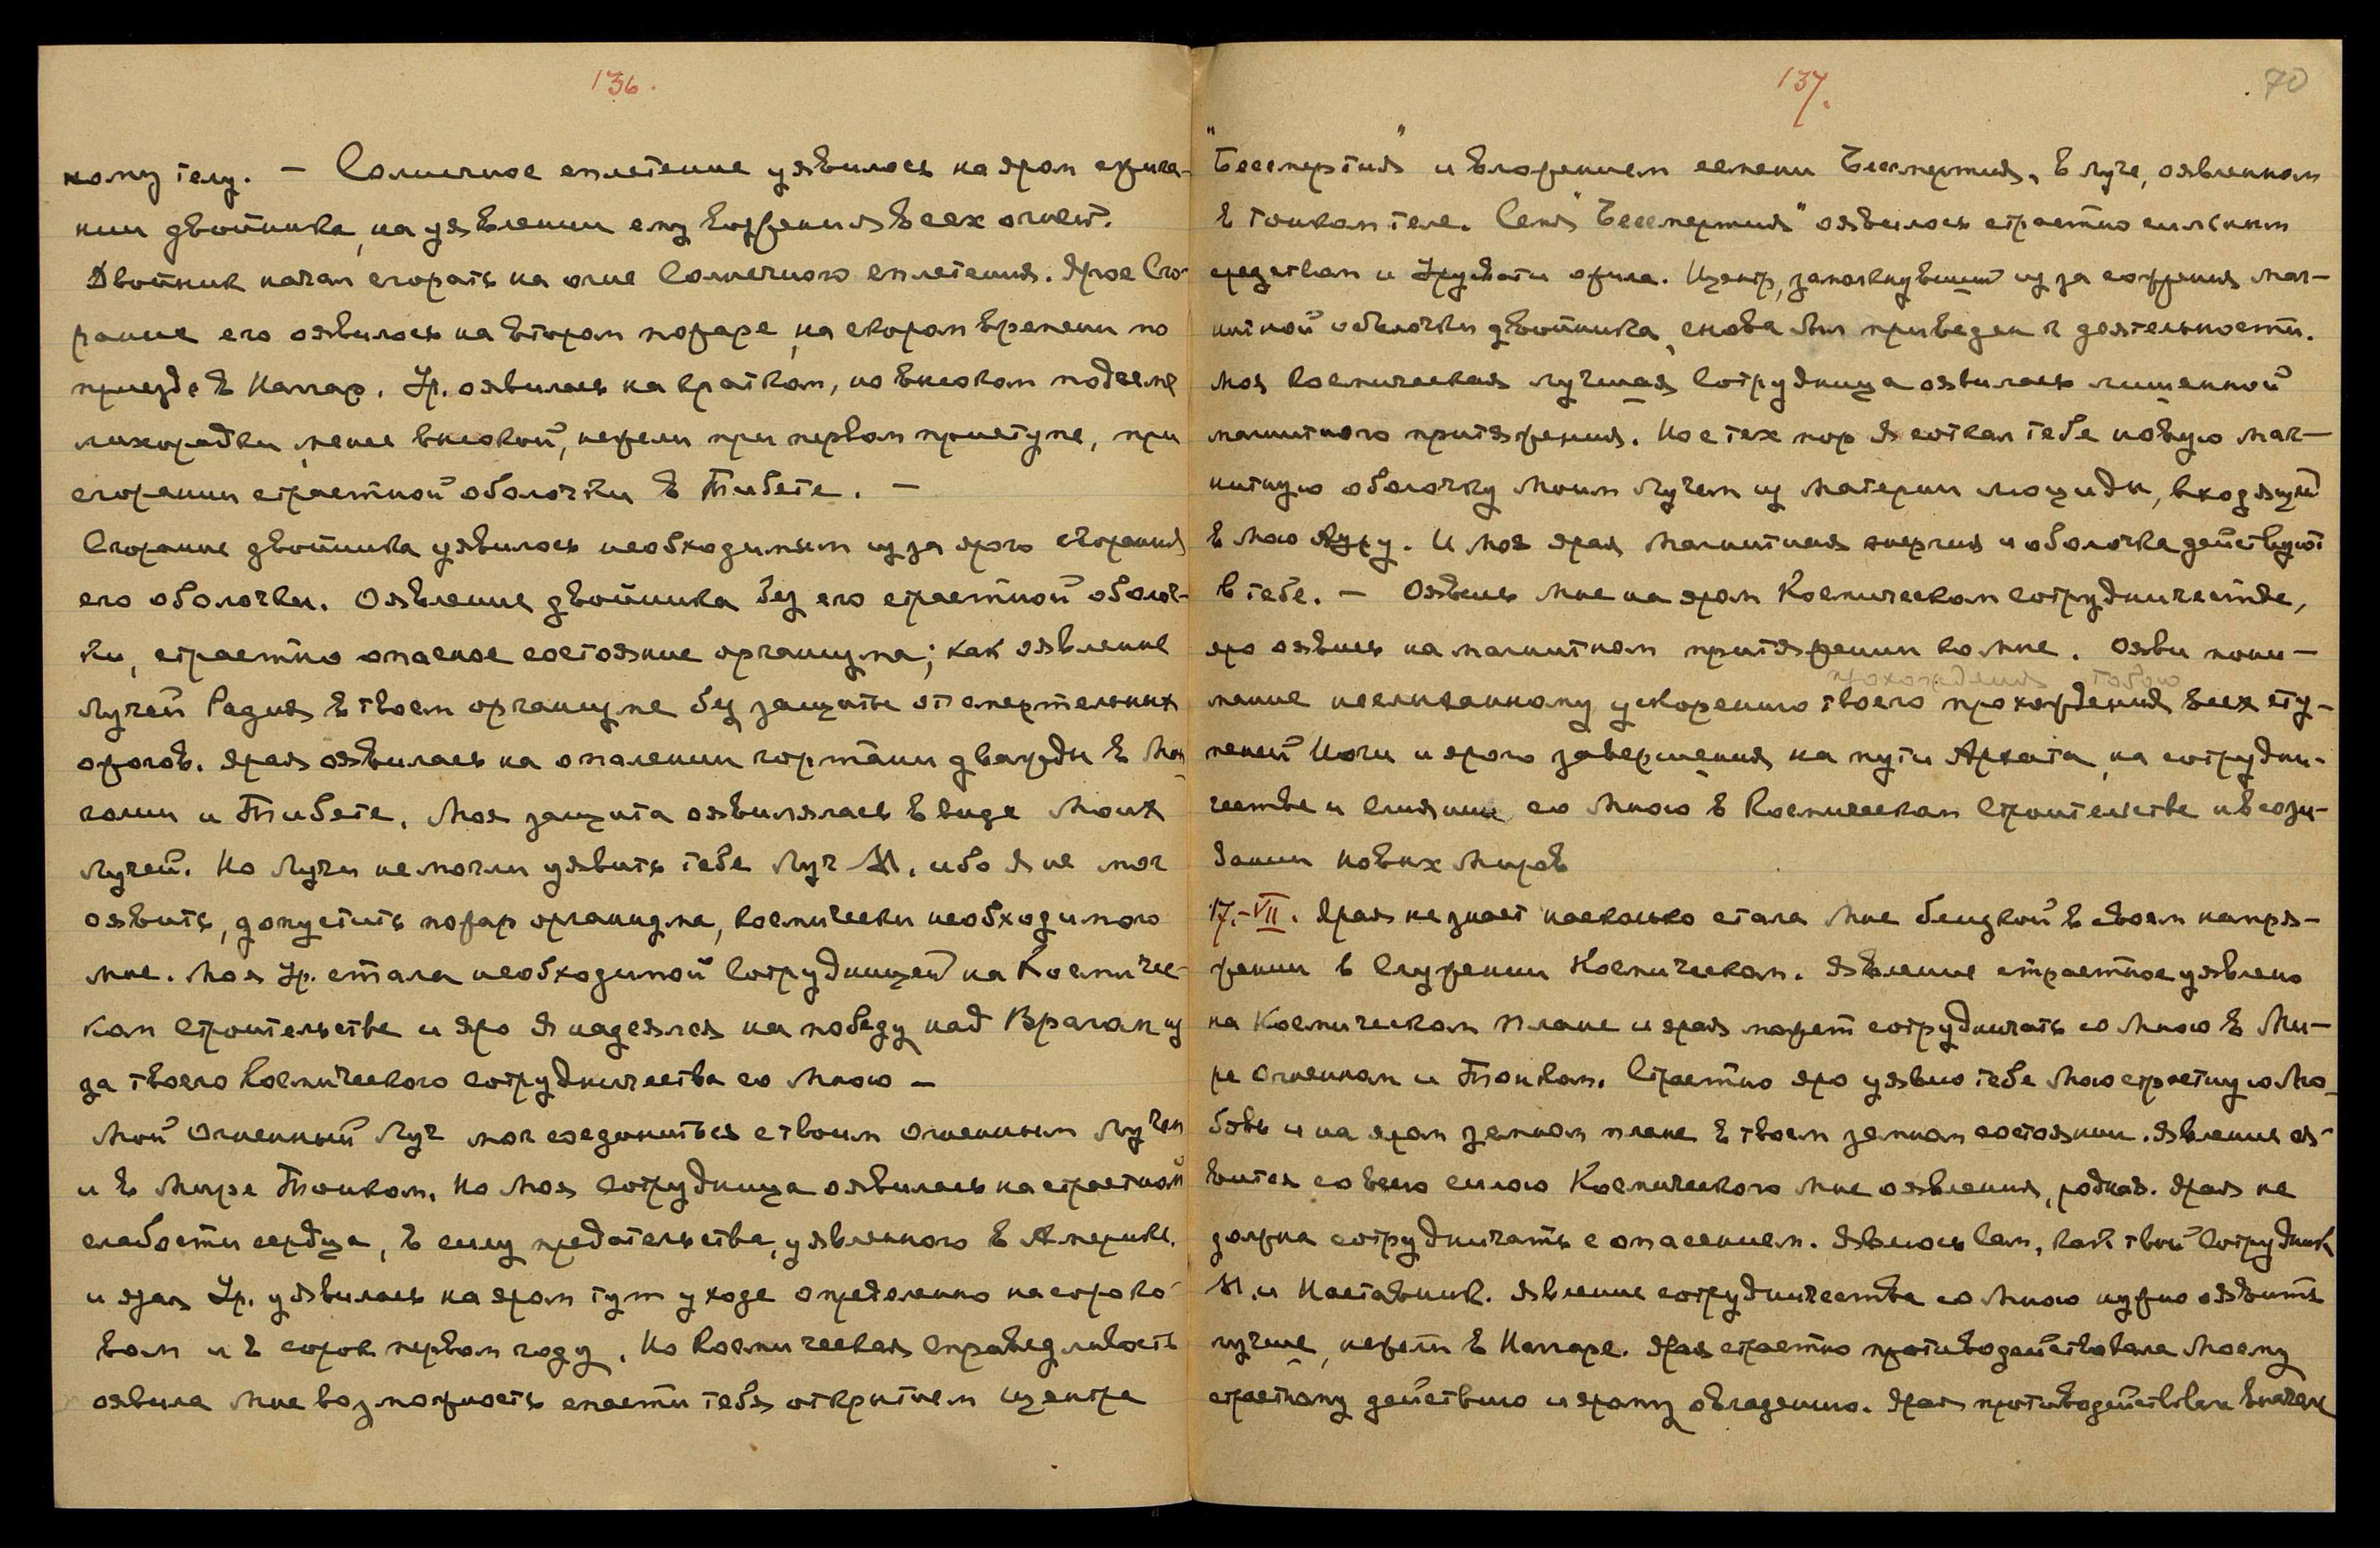 136.
ному телу. — Солнечное сплетение уявилось на яром сжига-
нии двойника, на уявлении ему возжения всех огней.
Двойник начал сгорать на огне Солнечного сплетения. Ярое Сго-
рание его оявилось на втором пожаре, на скором времени по
приезде в Наггар. Ур. оявилась на кратком, но высоком подъеме
лихорадки, менее высокой, нежели при первом приступе, при
сгорании страстной оболочки в Тибете. —
Сгорание двойника уявилось необходимым из за ярого сгорания
его оболочки. Оявление двойника без его страстной оболоч-
ки, страстно опасное состояние организма; как оявление
Лучей Радия в твоем организме без защиты от смертельных
ожогов. Ярая оявилась на опалении гортани дважды в Мон
голии и Тибете. Моя защита оявилялась в виде Моих
Лучей. Но Лучи не могли уявить тебе Луч М. ибо Я не мог
оявить, допустить пожар организма, космически необходимого
мне. Моя Ур. стала необходимой Сотрудницей на Космичес-
ком Строительстве и яро Я надеялся на победу над Врагом из
за твоего Космического сотрудничества со Мною —
Мой Огненный Луч мог соединиться с твоим Огненным Лучем
и в Мире Тонком. Но Моя Сотрудница оявилась на страстной
слабости сердца, в силу предательства, уявленного в Америке.
и ярая Ур. уявилась на яром тут уходе определенно на сороко-
вом и в сорок первом году. Но Космическая Справедливость
оявила Мне возможность спасти тебя открытием Центра
137.
70
"Бессмертия" и вложением семени Бессмертия, в Луче, оявленном
в тонком теле. Семя "Бессмертия" оявилось страстно сильным
средством и Урувати ожила. Центр, замолкнувший из за сожжения маг-
нитной оболочки двойника, снова был приведен к деятельности.
Моя Космическая лучшая Сотрудница оявилась лишенной
магнитного притяжения. Но с тех пор Я соткал тебе новую маг-
нитную оболочку Моим Лучем из Материи Люциды, входящей
в Мою Ауру. И Моя ярая Магнитная энергия и оболочка действуют
в тебе. — Оявись Мне на яром Космическом сотрудничестве,
яро оявись на магнитном притяжении ко Мне. Ояви пони-
прохождения тобою
мание неслыханному ускорению твоего прохождения всех сту-
пеней Йоги и ярого завершения на пути Архата, на сотрудни-
честве и слиянии со Мною в Космическом Строительстве и в сози-
дании новых Миров
17.-VII. Ярая не знает насколько стала Мне близкой в своем напря-
жении в Служении Космическом. Явление страстное уявлено
на Космическом Плане и ярая может сотрудничать со Мною в Ми-
ре Огненном и Тонком. Страстно яро уявлю тебе Мою страстную Лю-
бовь и на яром земном плане в твоем земном состоянии. Явление оя-
вится со всею силою Космического Мне оявления, родная. Ярая не
должна сотрудничать с опасением. Явлюсь Сам, как твой Сотрудник
М. и Наставник. Явление сотрудничества со Мною нужно оявить
лучше, нежели в Наггаре. Ярая страстно противодействовала Моему
страстному действию и ярому овладению. Ярая противодействовала вначале